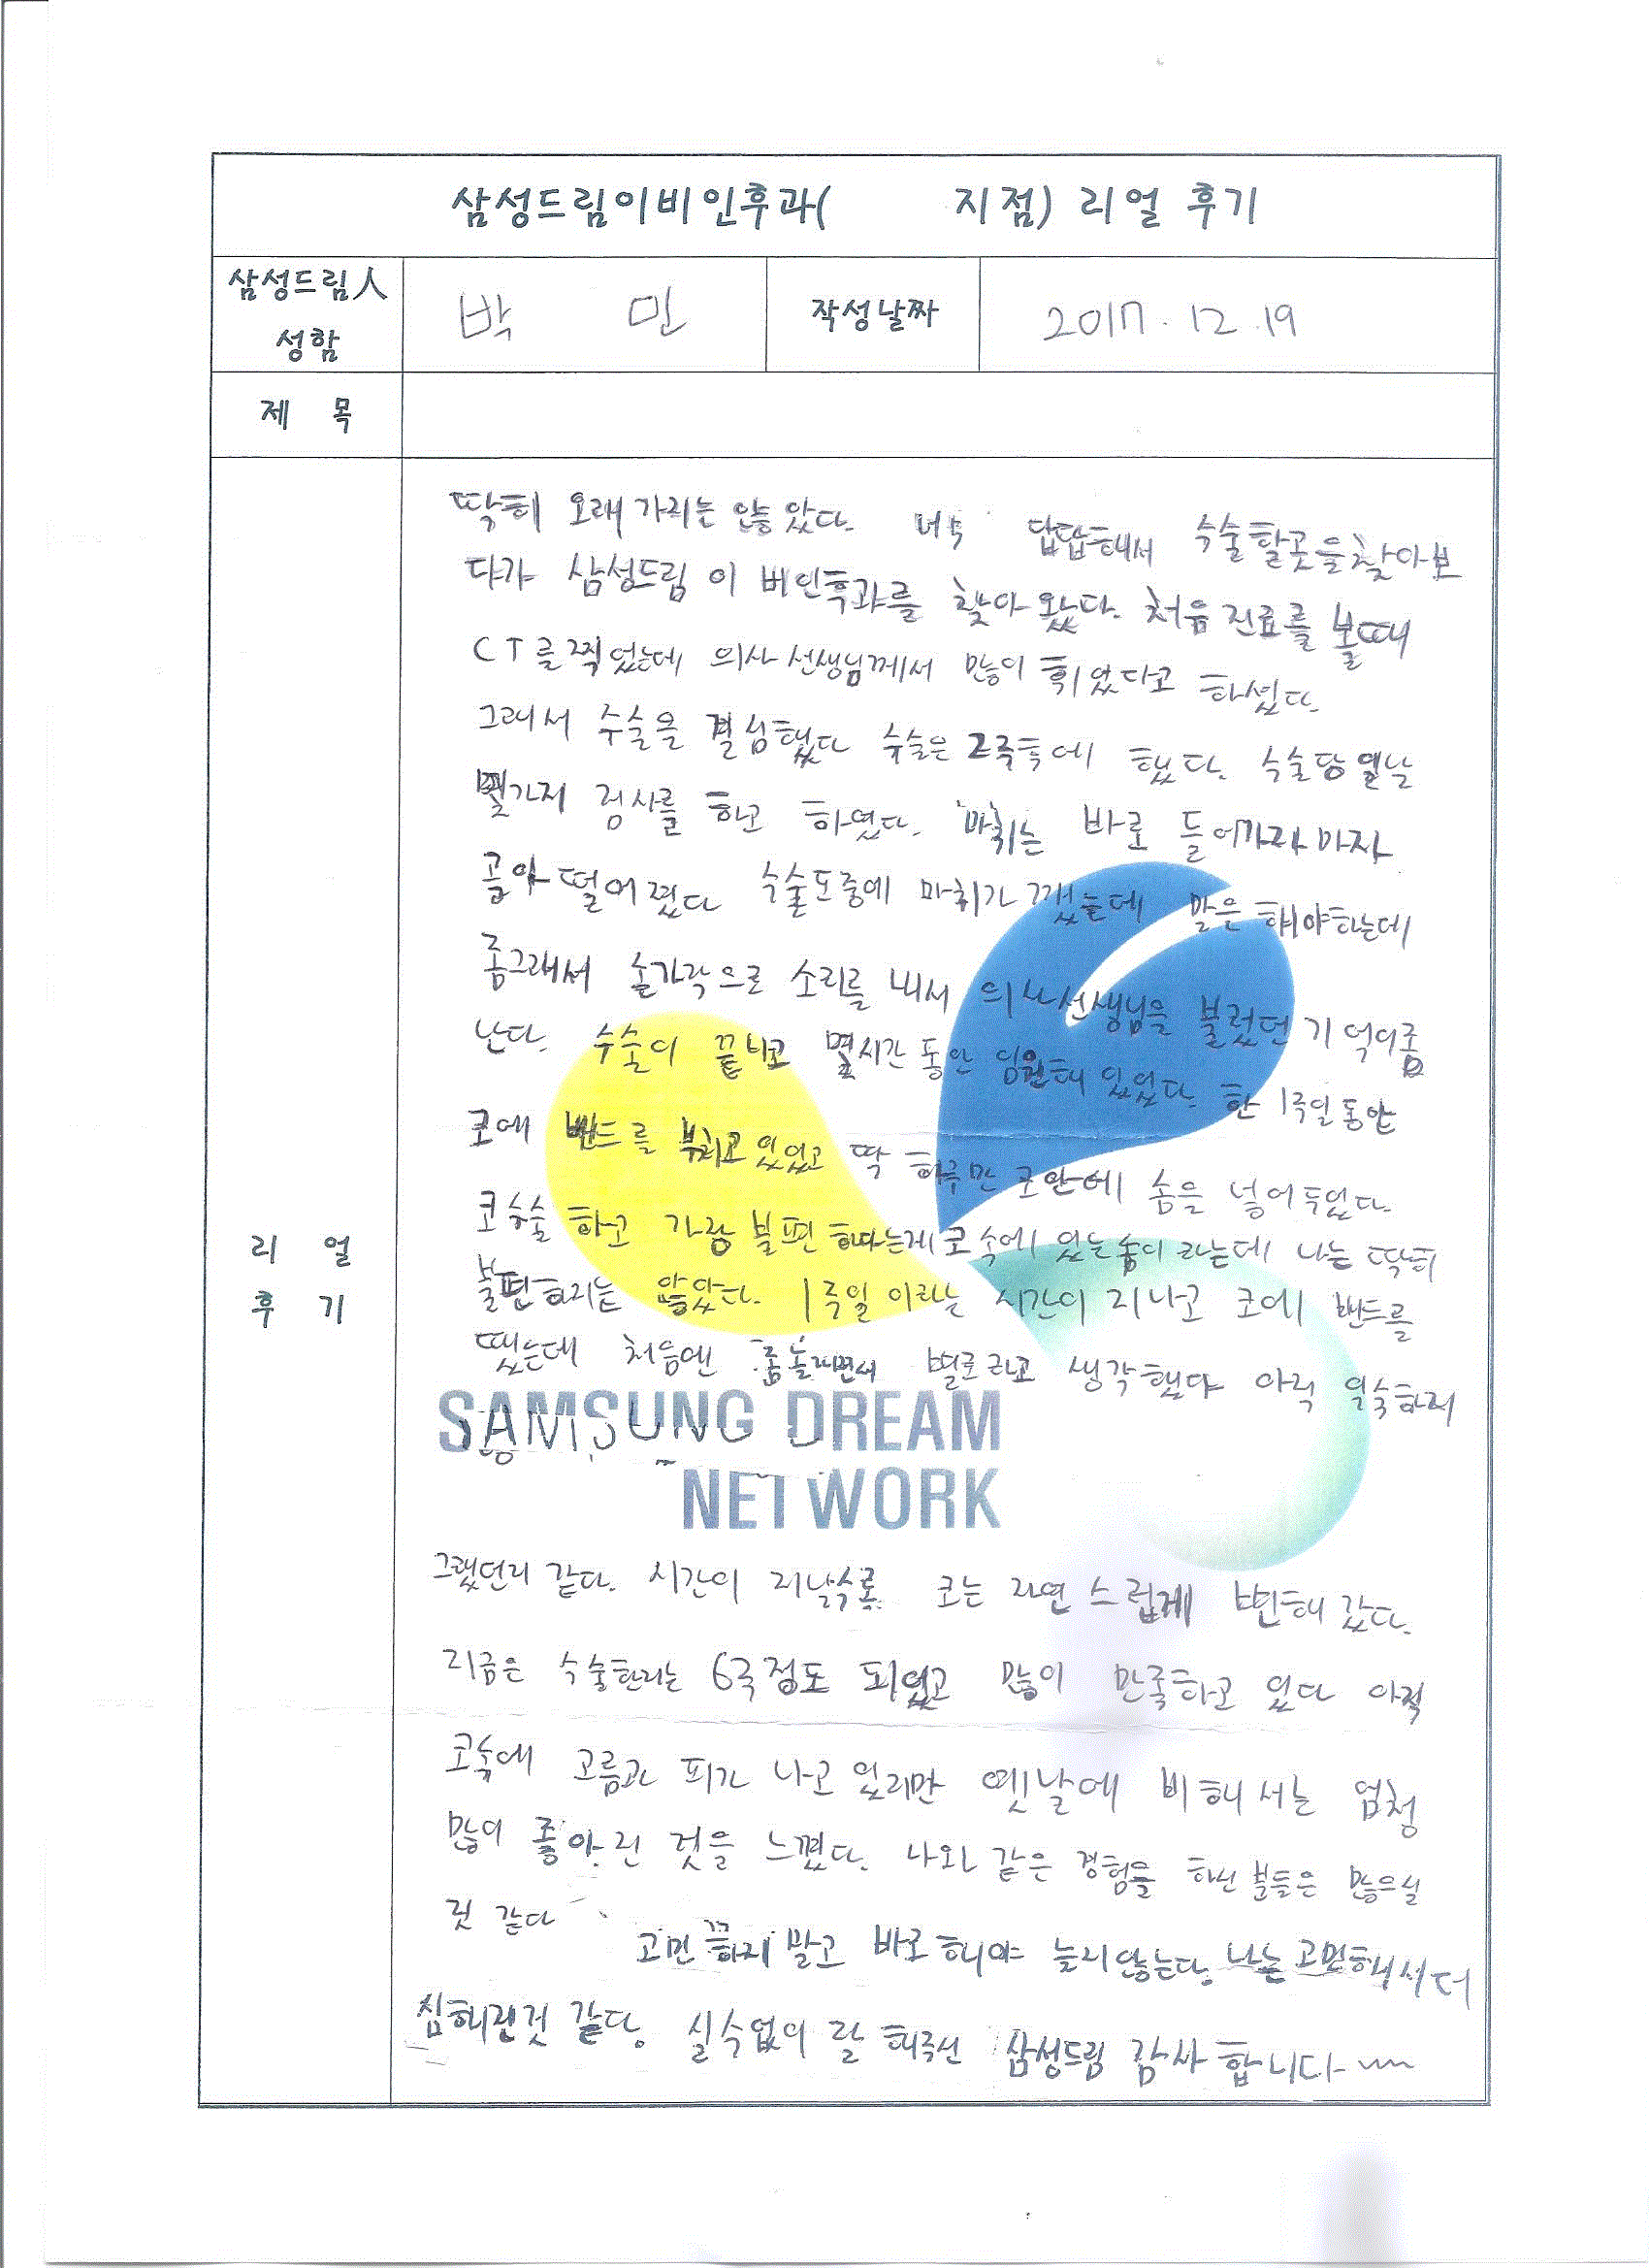 삼성드림이비인후과( 지점) 리얼 후기
삼성드림人
성함
박 민
작성날짜
2017.12.19
제 목
리 얼
후 기
딱히 오래가리는 않았다. 너무 답답해서 수술할곳을찾아보
다가 삼성드림 이비인후과를 찾아왔다. 처음진료를 볼때
CT를찍었는데 의사선생님께서 많이 휘었다고 하셨다.
그래서 수술을 결심했다 수술은 2주후에 했다. 수술당일날
몇가지 검사를 하고 하였다. 마취는 바로 들어가자마자
곯아떨어졌다 수술도중에 마취가 깼는데 말은 해야하는데
좀그래서 손가락으로 소리를 내서 의사선생님을 불렀던 기억이좀
난다. 수술이 끝나고 몇시간 동안 입원해 있었다. 한 1주일동안
코에 밴드를 부치고있었고 딱 하루만 코안에 솜을 넣어두었다.
코수술 하고 가장 불편하다는게 코속에 있는솜이라는데 나는 딱히
불편하지는 않았다. 1주일이라는 시간이 지나고 코에 밴드를
뗐는데 처음엔 좀 별로라고 생각했다 아직 익숙하지
SAMSUNG DREAM
NETWORK
그랬던리 같다. 시간이 지날수록 코는 자연스럽게 변해 갔다.
지금은 수술한지는 6주정도 되었고 많이 만족하고 있다 아직
코속에 고름과 피가 나고 있지만 옛날에 비해서는 엄청
많이 좋아진 것을 느꼈다. 나와 같은 경험을 하신분들은 많으실
것 같다
고민 하지말고 바로해야 늘리않는다. 나는 고민해서더
심해진것 같다. 실수없이 잘 해주신 삼성드림 감사합니다~